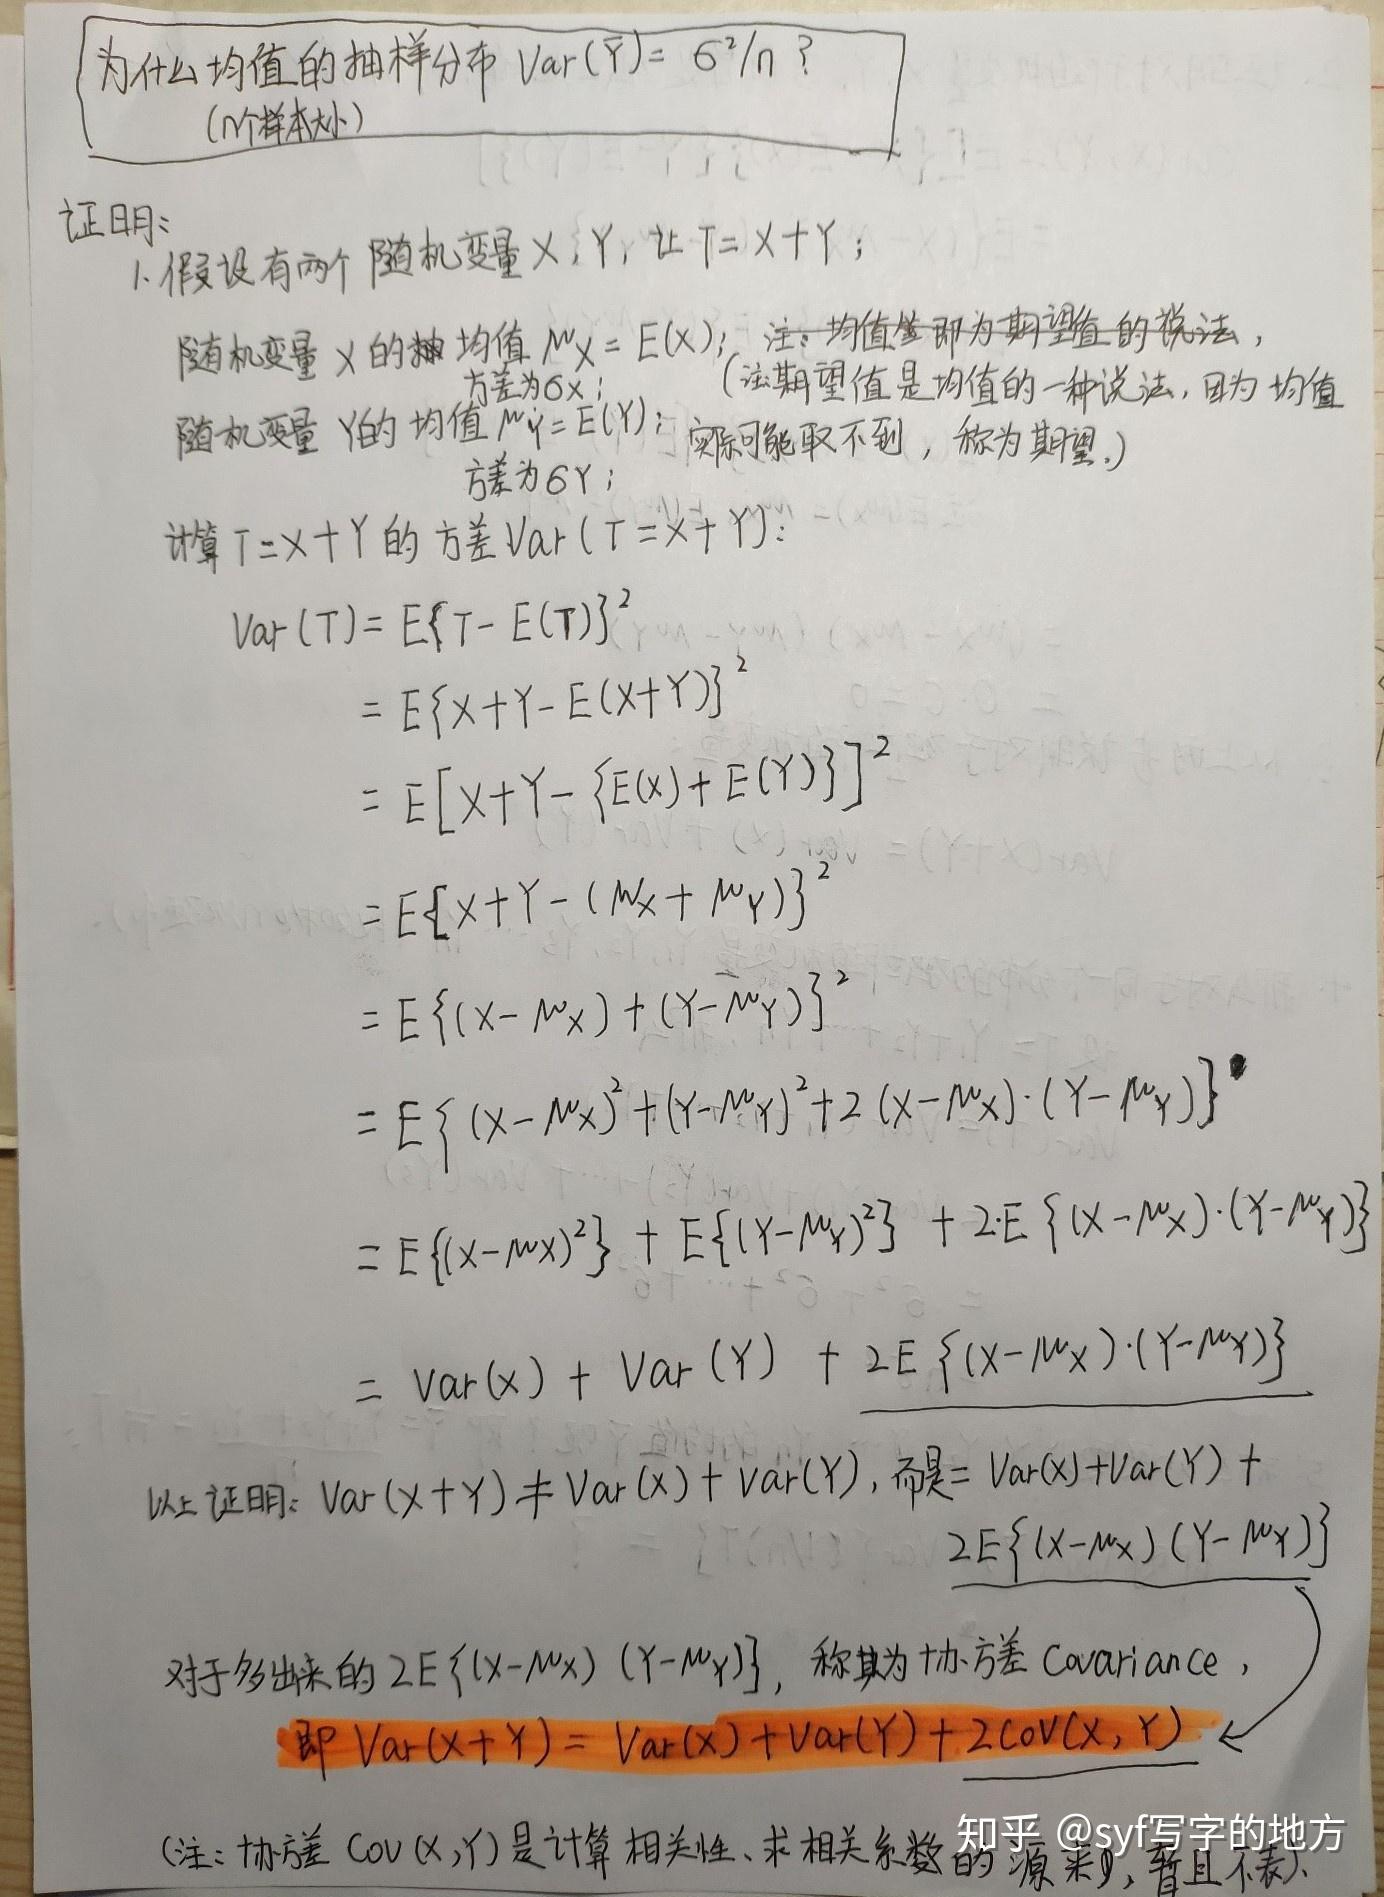 为什么均值的抽样分布 Var(Ȳ) = σ²/n ?
(n个样本大小)
证明:
1. 假设有两个随机变量 X, Y, 让 T = X+Y ;
随机变量 X 的 均值 μx = E(X); 注: 均值 即为期望值的说法,
方差为σx ; (注期望值是均值的一种说法, 因为均值
随机变量 Y的 均值 μY = E(Y); 实际可能取不到, 称为期望.)
方差为σY ;
计算T=X+Y 的 方差 Var(T=X+Y):
Var(T) = E{T- E(T)}²
= E{X+Y- E(X+Y)}²
= E[X+Y- {E(X) + E(Y)}]²
= E{X+Y- (μX + μY)}²
= E{(X- μX) + (Y-μY)}²
= E{(X-μX)²+(Y-μY)²+2(X-μX)·(Y-μY)}
= E{(X-μX)²} + E{(Y-μY)²} + 2·E{(X-μX)·(Y-μY)}
= Var(X) + Var(Y) + 2E{(X-μX)·(Y-μY)}
以上证明: Var(X+Y) ≠ Var(X) + Var(Y), 而是= Var(X)+Var(Y) +
2E{(X-μX)(Y-μY)}
对于多出来的 2E{(X-μX) (Y-μY)}, 称其为协方差 Covariance ,
即 Var(X+Y) = Var(X)+Var(Y)+2COV(X, Y)
(注: 协方差 COV(X,Y)是计算相关性、求相关系数的源来, 暂且不表).
知乎 @syf写字的地方